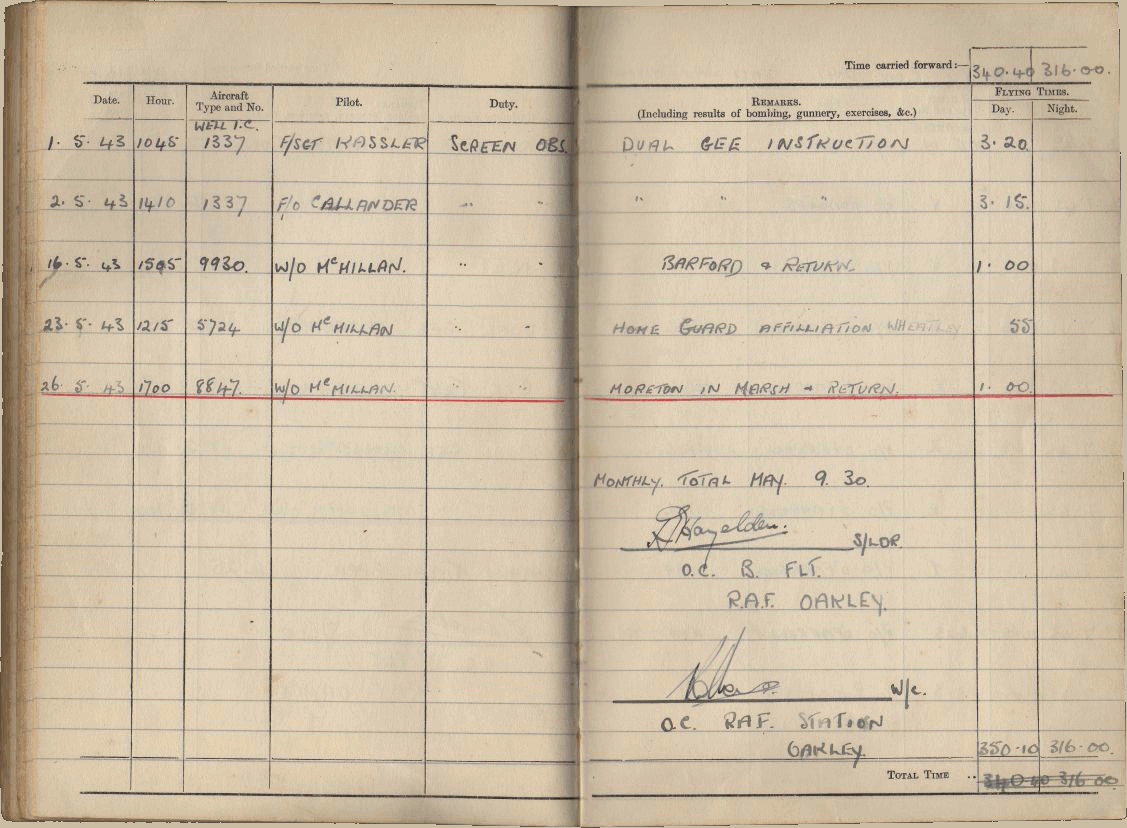 Time carried forward:— 340.40 316.00.
Date. Hour. Aircraft Type and No. Pilot. Duty. REMARKS. (Including results of bombing, gunnery, exercises, &c.) FLYING TIMES. Day. Night.
WELL I.C.
1. 5. 43 1045 1337 F/SGT KASSLER SCREEN OBS. DUAL GEE INSTRUCTION 3.20.
2. 5. 43 1410 1337 F/O CALLANDER " " " " " 3.15.
16. 5. 43 1505 9930. W/O McMILLAN. " " BARFORD & RETURN. 1.00
23. 5. 43 1215 5724 W/O McMILLAN " " HOME GUARD AFFILLIATION WHEATLEY 55
26. 5. 43 1700 8847. W/O McMILLAN. " " MORETON IN MARSH & RETURN. 1.00.
MONTHLY. TOTAL MAY. 9.30.
S/LDR.
O.C. B. FLT.
R.A.F. OAKLEY.
W/C.
O.C. RAF. STATION
OAKLEY. 350.10 316.00.
TOTAL TIME .. 340.40 316 00